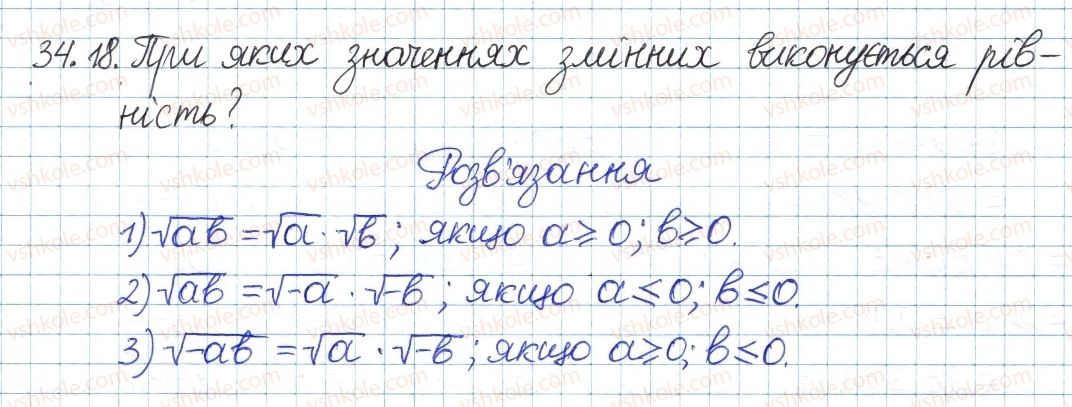 34.18. При яких значеннях змінних виконується рів-
ність?
Розв'язання
1) √ab = √a · √b; якщо a ≥ 0; b ≥ 0.
2) √ab = √-a · √-b; якщо a ≤ 0; b ≤ 0.
3) √-ab = √a · √-b; якщо a ≥ 0; b ≤ 0.